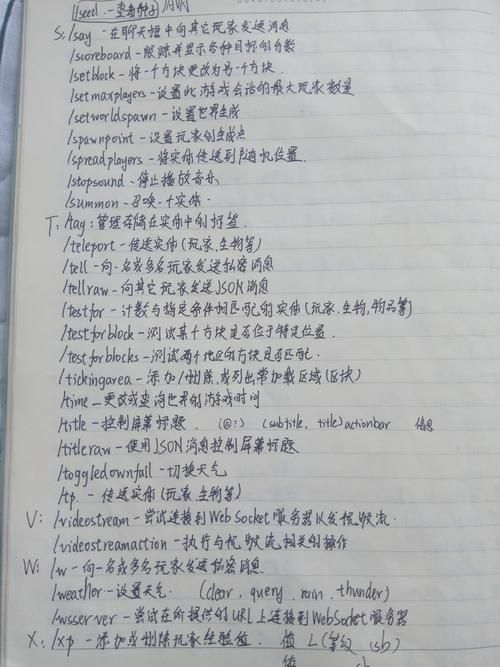 /seed - 查看种子
S: /say - 在聊天框中向其它玩家发送消息
/scoreboard - 跟踪并显示各种目标的分数
/setblock - 将一个方块更改为另一个方块.
/setmaxplayers - 设置此游戏会话的最大玩家数量
/setworldspawn - 设置世界生成
/spawnpoint - 设置玩家的生成点
/spreadplayers - 将实体传送到随机位置.
/stopsound - 停止播放音乐
/summon - 召唤一个实体.
T: /tag: 管理存储在实体中的标签
/teleport - 传送实体(玩家.生物等)
/tell - 向一名或多名玩家发送私密消息
/tellraw - 向其它玩家发送JSON消息
/testfor - 计数与指定条件相匹配的实体(玩家,生物,物品等)
/testforblock - 测试某个方块是否位于特定位置.
/testforblocks - 测试两个地区的方块是否匹配.
/tickingarea - 添加/删除,或列出常加载区域(区块)
/time - 更改或查询世界的游戏时间
/title - 控制屏幕标题. (@?) (subtitle、title)actionbar 信息
/titleraw - 使用JSON消息控制屏幕标题
/toggledownfall - 切换天气
/tp. - 传送实体(玩家.生物等)
V: /videostream - 尝试连接到WebSocket服务器以发视频流.
/videostreamaction - 执行与视频流相关的操作
W: /w - 向一名或多名玩家发送私密消息
/weather - 设置天气. (clear, query. rain. thunder)
/wsserver - 尝试在所提供的URL上连接到WebSocket服务器
X: /xp - 添加或删除玩家经验值. 值 L(等级
值